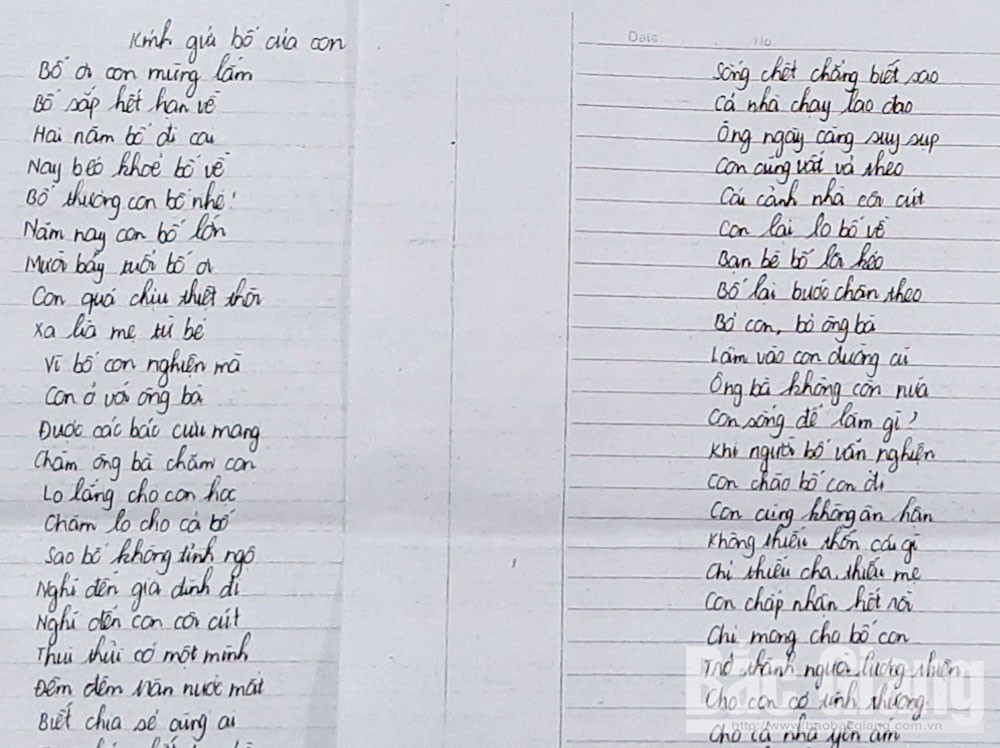 Kính gửi bố của con
Bố ơi con mừng lắm
Bố sắp hết hạn về
Hai năm bố đi cai
Nay béo khoẻ bố về
Bố thương con bố nhé!
Năm nay con bố lớn
Mười bảy tuổi bố ơi
Con quá chịu thiệt thòi
Xa lìa mẹ từ bé
Vì bố con nghiện mà
Con ở với ông bà
Được các bác cưu mang
Chăm ông bà chăm con
Lo lắng cho con học
Chăm lo cho cả bố
Sao bố không tỉnh ngộ
Nghĩ đến gia đình đi
Nghĩ đến con côi cút
Thui thủi có một mình
Đêm đêm tràn nước mắt
Biết chia sẻ cùng ai
Date No
Sống chết chẳng biết sao
Cả nhà chạy lao đao
Ông ngày càng suy sụp
Con cũng vất vả theo
Cái cảnh nhà côi cút
Con lại lo bố về
Bạn bè bố lôi kéo
Bố lại bước chân theo
Bỏ con, bỏ ông bà
Lầm vào con đường cũ
Ông bà không còn nữa
Con sống để làm gì?
Khi người bố vẫn nghiện
Con chào bố con đi
Con cũng không ân hận
Không thiếu thốn cái gì
Chỉ thiếu cha, thiếu mẹ
Con chấp nhận hết rồi
Chỉ mong cho bố con
Trở thành người lương thiện
Cho con có tình thương
Cho cả nhà yên ấm
Bắc Giang
http://www.baobacgiang.com.vn